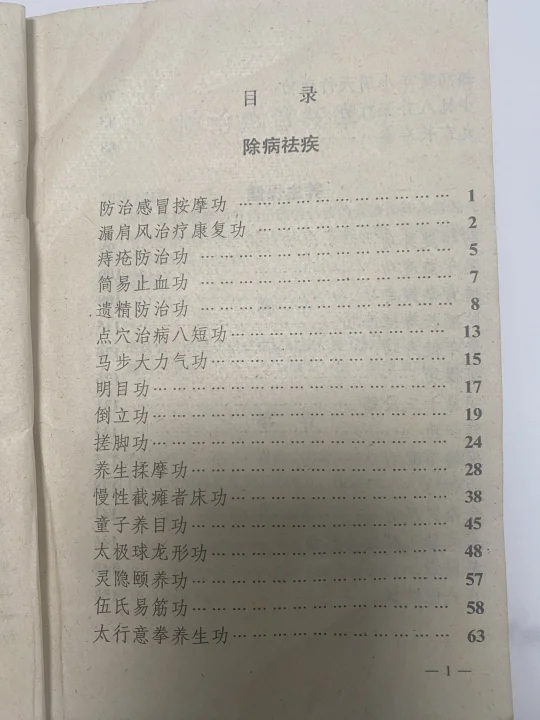 目 录
除病祛疾
防治感冒按摩功 ………………………… 1
漏肩风治疗康复功 ……………………… 2
痔疮防治功 ……………………………… 5
简易止血功 ……………………………… 7
遗精防治功 ……………………………… 8
点穴治病八短功………………………… 13
马步大力气功…………………………… 15
明目功…………………………………… 17
倒立功…………………………………… 19
搓脚功…………………………………… 24
养生揉摩功……………………………… 28
慢性截瘫者床功………………………… 38
童子养目功……………………………… 45
太极球龙形功…………………………… 48
灵隐颐养功……………………………… 57
伍氏易筋功……………………………… 58
太行意拳养生功………………………… 63
— 1 —